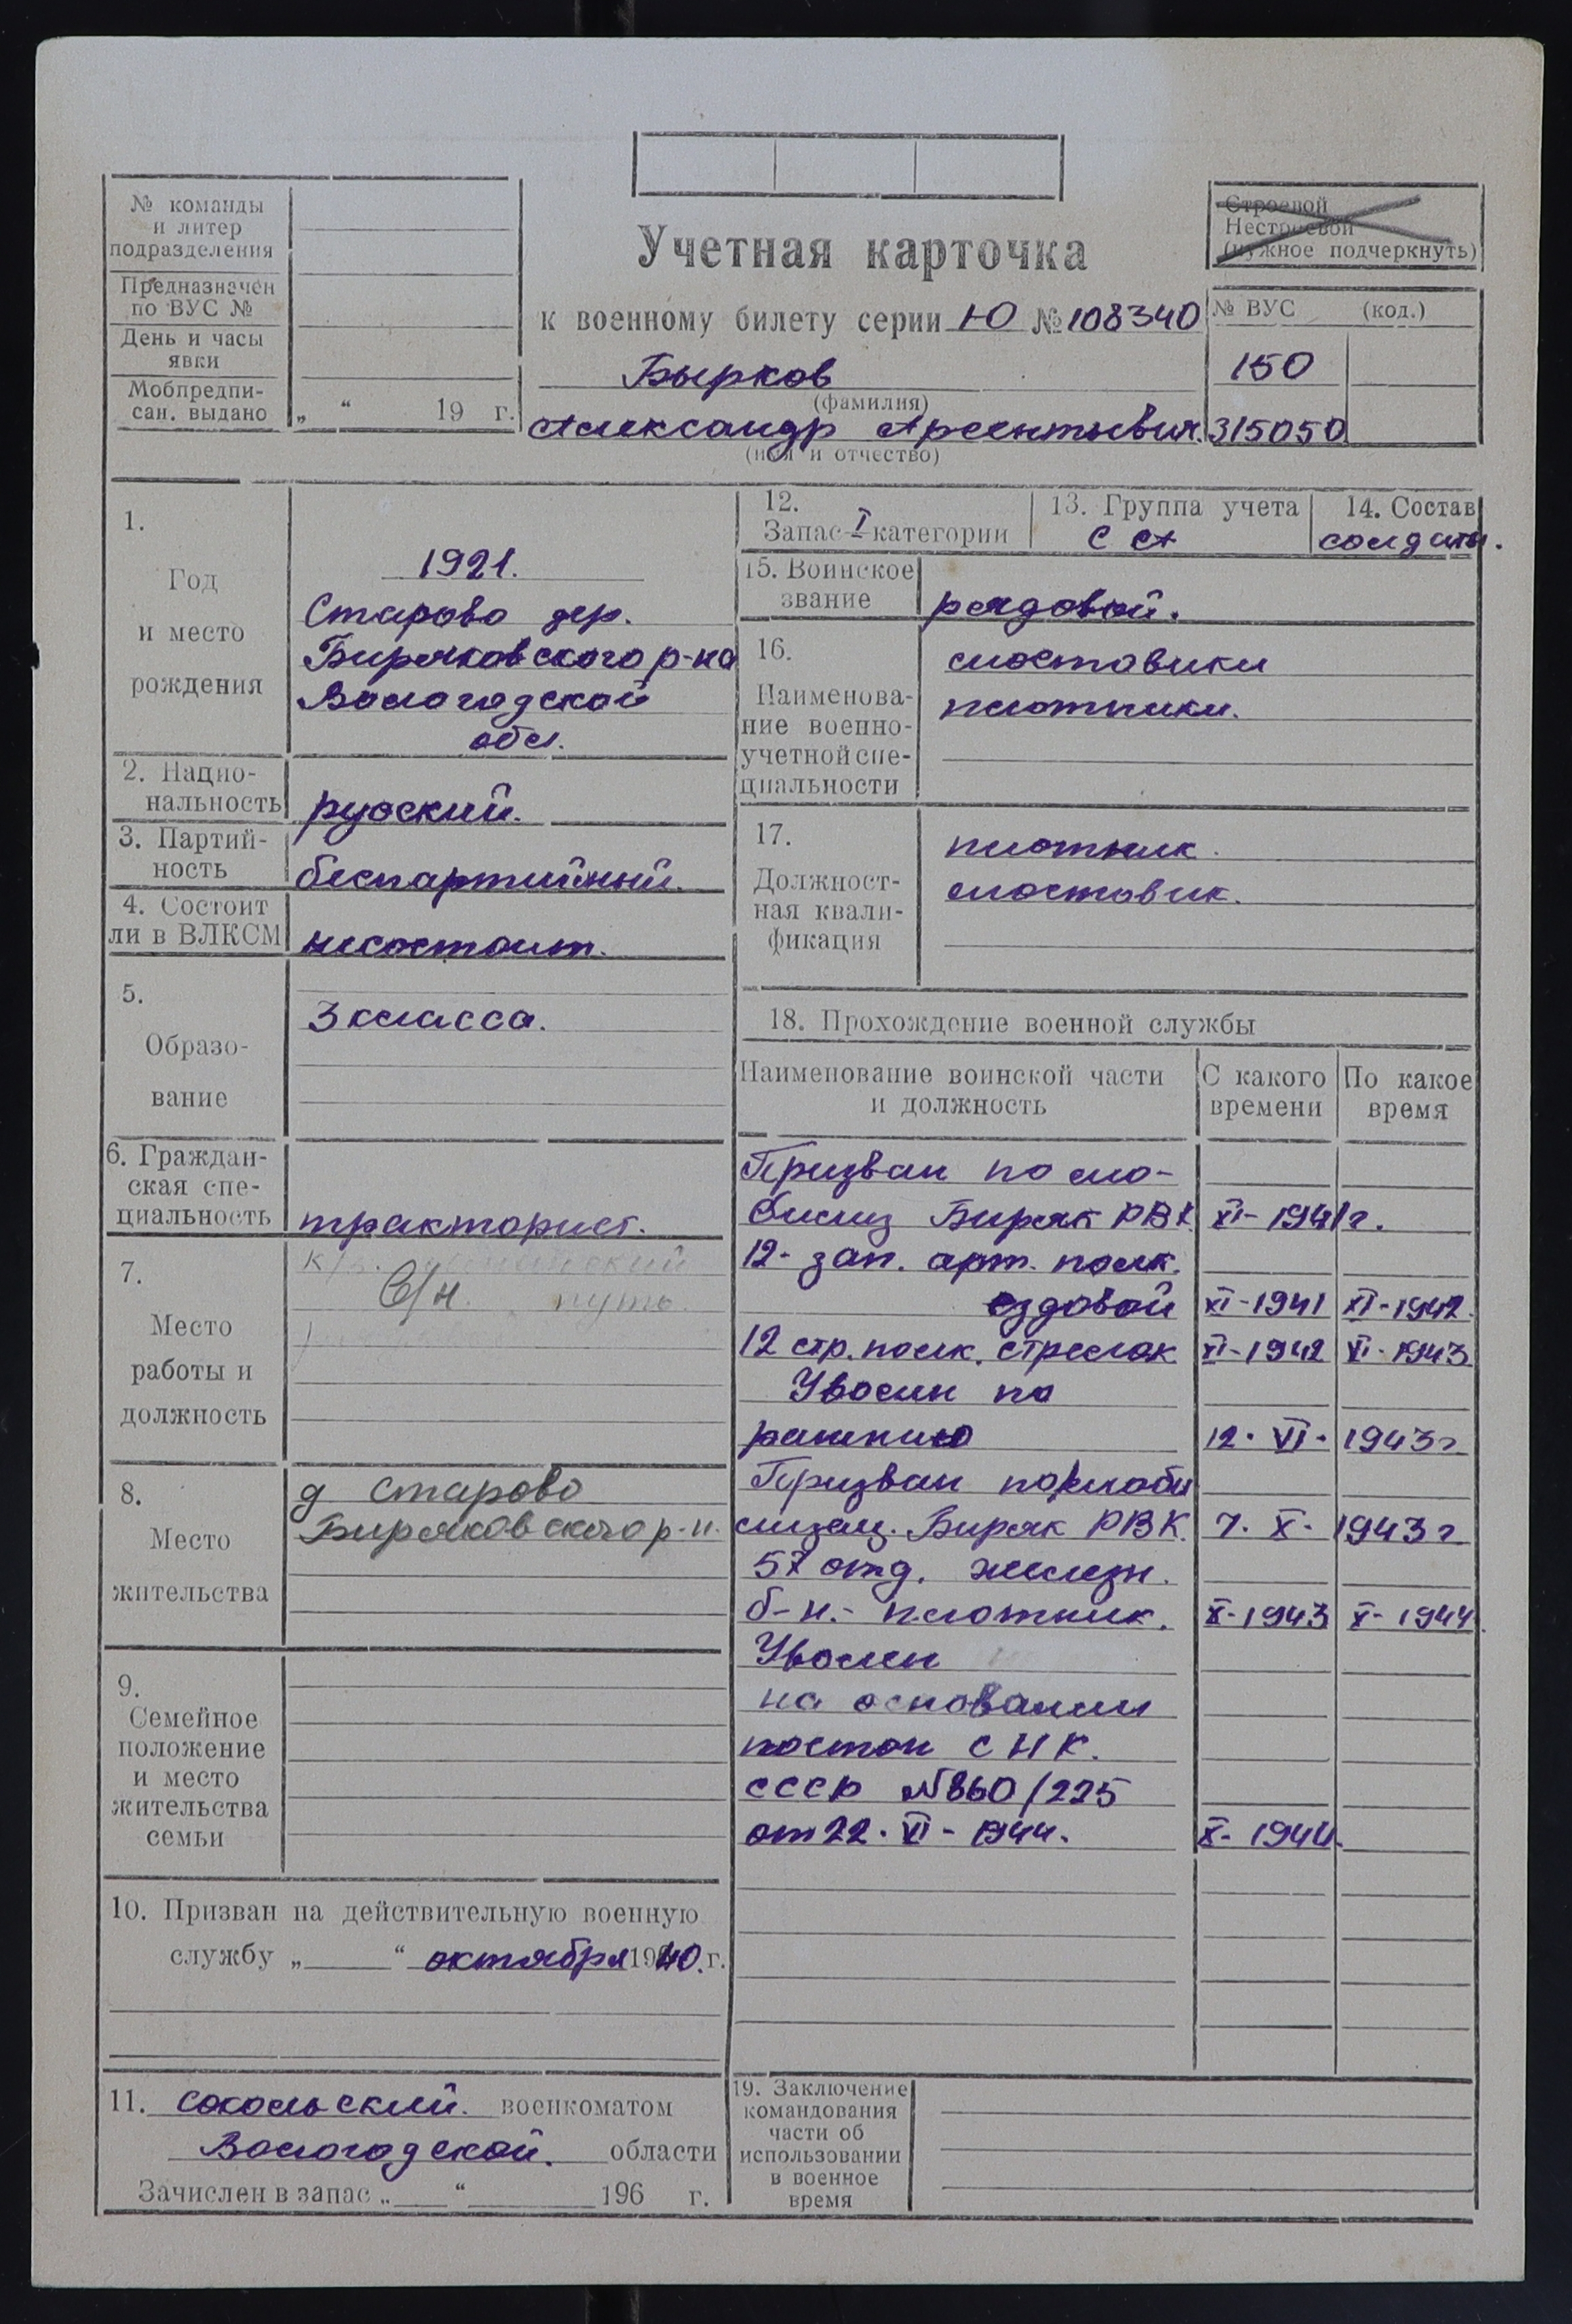 № команды
и литер
подразделения
Предназначен
по ВУС №
День и часы
явки
Мобпредпи-
сан. выдано
„ “ 19 г.
Учетная карточка
к военному билету серии Ю № 108340
Бырков
(фамилия)
Александр Арсентьевич.
(имя и отчество)
Строевой
Нестроевой
(нужное подчеркнуть)
№ ВУС (код.)
150
315050
1.
Год
и место
рождения
1921.
Старово дер.
Биряковского р-на
Вологодской
обл.
2. Нацио-
нальность
русский.
3. Партий-
ность
беспартийный.
4. Состоит
ли в ВЛКСМ
несостоит.
5.
Образо-
вание
3 класса.
6. Граждан-
ская спе-
циальность
тракторист.
7.
Место
работы и
должность
к/з.
путь.
8.
Место
жительства
д Старово
Биряковского р-н.
9.
Семейное
положение
и место
жительства
семьи
10. Призван на действительную военную
службу „ “ октября 1940. г.
11. Сокольский. военкоматом
Вологодской. области
Зачислен в запас „ “ 196 г.
12.
Запас I категории
13. Группа учета
СА
14. Состав
солдаты.
15. Воинское
звание
рядовой.
16.
Наименова-
ние военно-
учетной спе-
циальности
мостовики
плотники.
17.
Должност-
ная квали-
фикация
плотник.
мостовик.
18. Прохождение военной службы
Наименование воинской части
и должность
С какого
времени
По какое
время
Призван по мо-
билиз Биряк РВК XI-1941г.
12- зап. арт. полк.
ездовой XI-1941 XI-1942.
12 стр. полк. стрелок XI-1942 VI-1943
Уволен по
ранению 12. VI. 1943г
Призван по моби
лизац. Биряк РВК. 7. X. 1943г
57 отд. железн.
б-н.- плотник. X-1943 X-1944.
Уволен
на основании
постан СНК.
СССР №860/225
от 22. VI - 1944. X- 1944.
19. Заключение
командования
части об
использовании
в военное
время